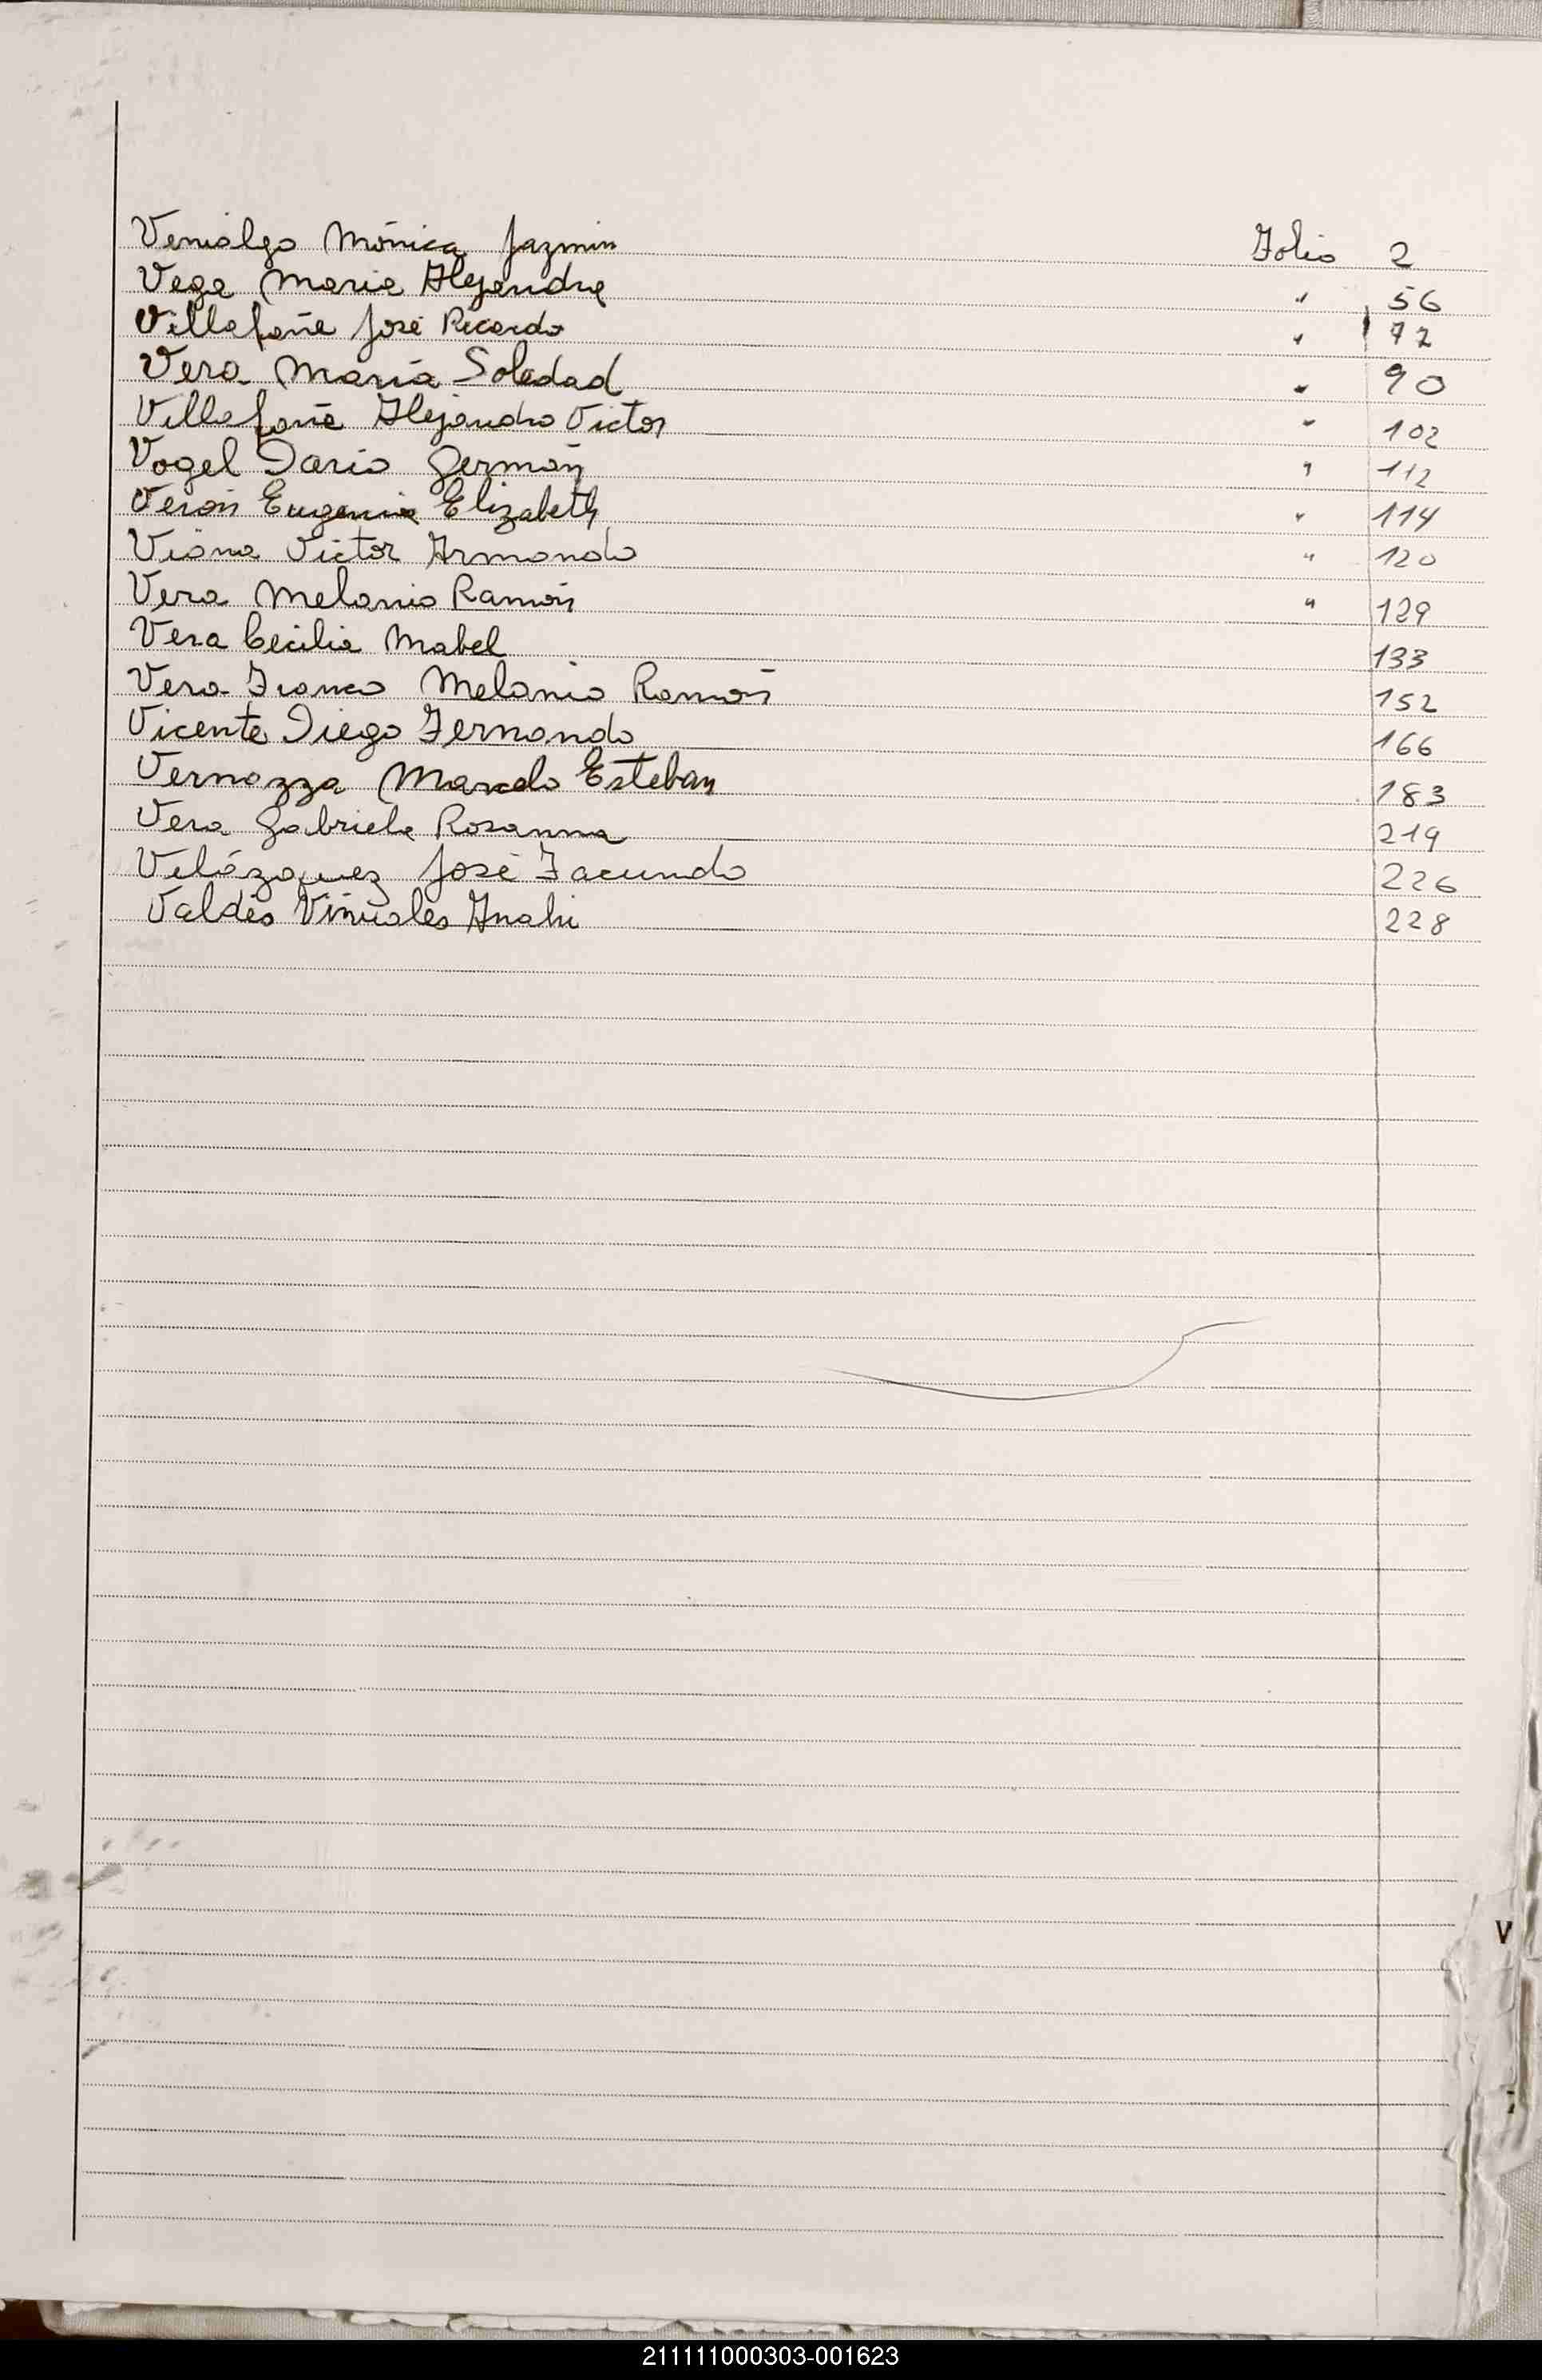 Venialgo Mónica Jazmin Folio 2
Vega Maria Alejandra " 56
Villafañe José Ricardo " 72
Vera María Soledad " 90
Villafañe Alejandro Victor " 102
Vogel Dario Germán " 112
Verón Eugenia Elizabeth " 114
Viana Victor Armando " 120
Vera Melanio Ramón " 129
Vera Cecilia Mabel 133
Vera Franco Melanio Ramón 152
Vicente Diego Fernando 166
Vernazza Marcelo Esteban 183
Vera Gabriela Rosanna 219
Velázquez José Facundo 226
Valdés Viñuales Anahi 228
V
211111000303-001623